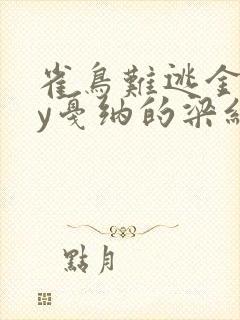 雀鳥難逃金
y戛纳的梁
點月